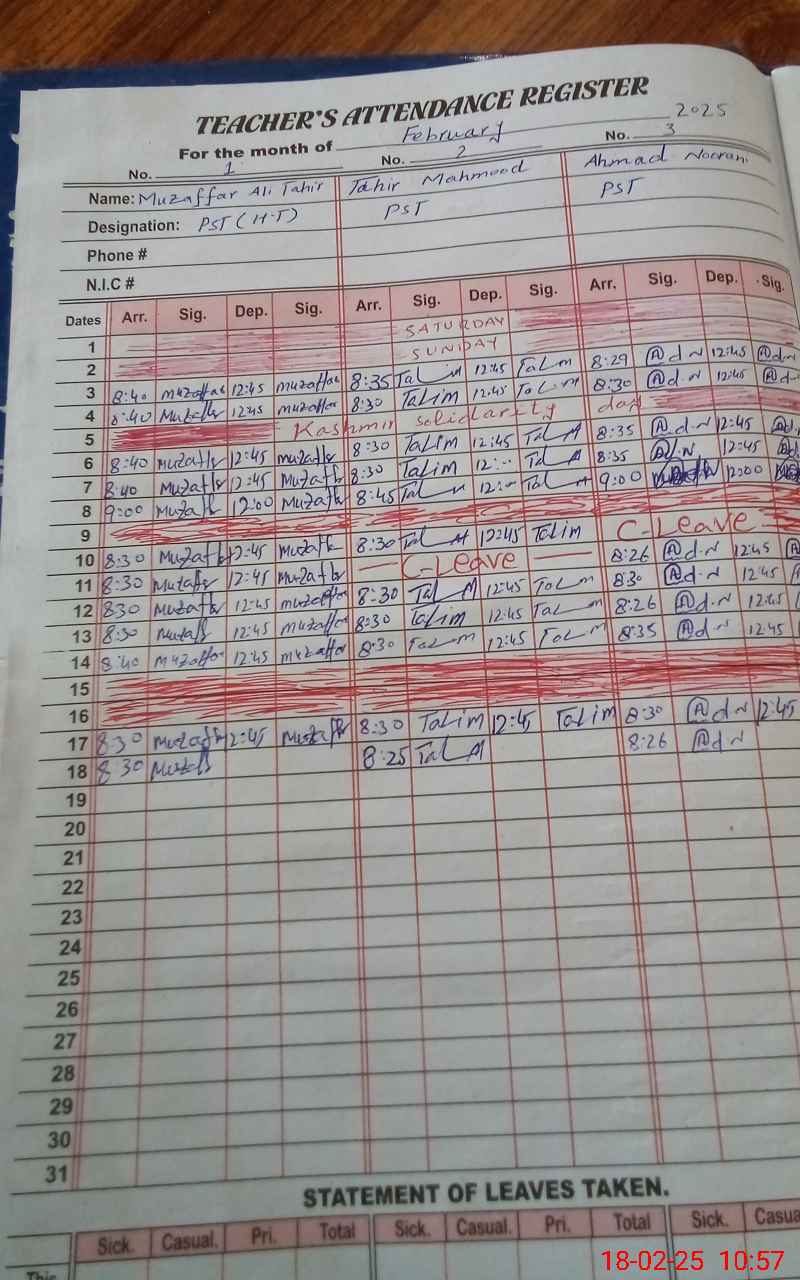 TEACHER'S ATTENDANCE REGISTER
For the month of February 2025
No. 1 No. 2 No. 3
Name: Muzaffar Ali Tahir Tahir Mahmood Ahmad Noorani
Designation: PST (H.T) PST PST
Phone #
N.I.C #
Dates Arr. Sig. Dep. Sig. Arr. Sig. Dep. Sig. Arr. Sig. Dep. Sig.
1 SATURDAY
2 SUNDAY
3 8:40 muzaffar 12:45 muzaffar 8:35 Talim 12:45 Talim 8:29 12:45
4 8:40 Muzaffr 12:45 muzaffar 8:30 Talim 12:45 Talim 8:30 12:45
5 Kashmir Solidarity day
6 8:40 muzaffr 12:45 muzaffr 8:30 Talim 12:45 8:35 12:45
7 8:40 Muzaffr 12:45 Muzaffr 8:30 Talim 8:35 12:45
8 9:00 Muzaffr 12:00 Muzaffr 8:45 9:00 12:00
9
10 8:30 Muzaffr 12:45 Muzaffr 8:30 12:45 Talim C-Leave
11 8:30 Muzaffr 12:45 Muzaffr — C-Leave — 8:26 12:45
12 8:30 Muzaffr 12:45 muzaffar 8:30 12:45 Talim 8:30 12:45
13 8:30 12:45 Muzaffar 8:30 Talim 12:45 Talim 8:26 12:45
14 8:40 muzaffar 12:45 muzaffar 8:30 Talim 12:45 Talim 8:35 12:45
15
16
17 8:30 Muzaffr 12:45 Muzaffr 8:30 Talim 12:45 Talim 8:30 12:45
18 8:30 Muzaffr 8:25 8:26
19
20
21
22
23
24
25
26
27
28
29
30
31
STATEMENT OF LEAVES TAKEN.
Sick. Casual. Pri. Total Sick. Casual. Pri. Total Sick.
This
18-02-25 10:57